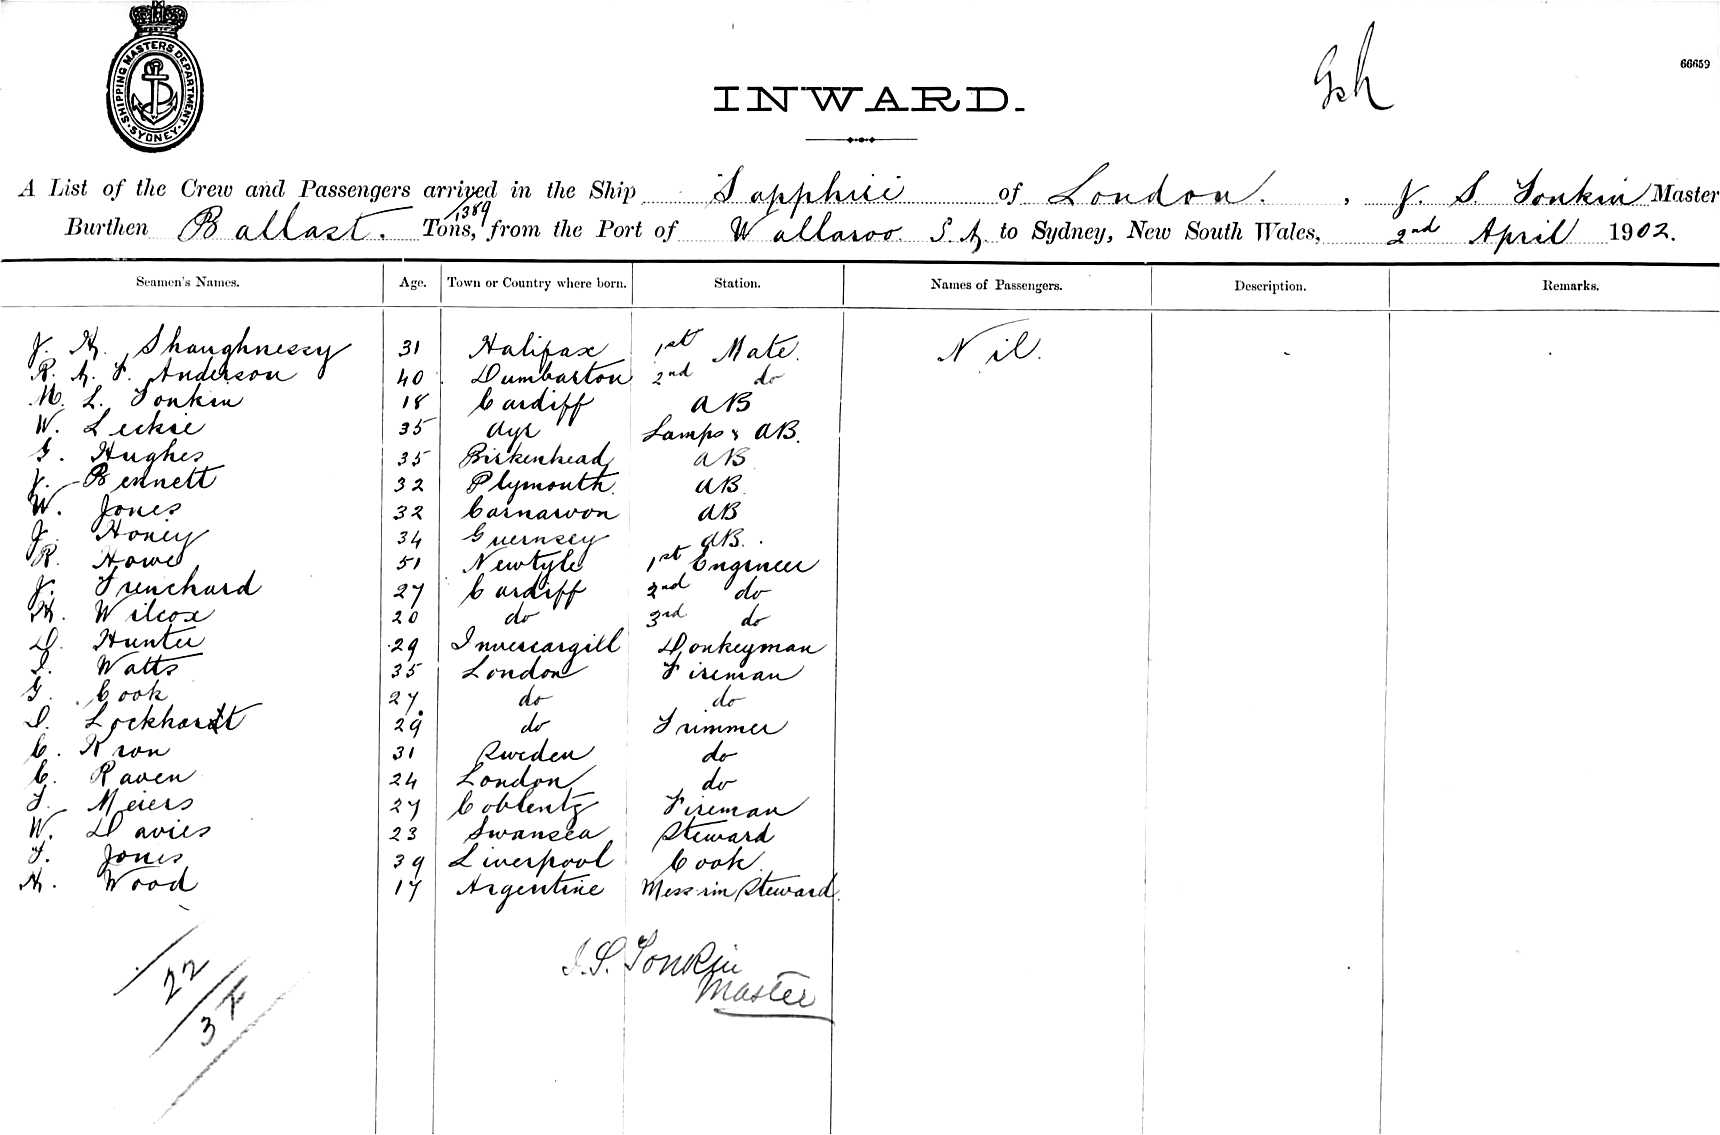 SHIPPING MASTERS DEPARTMENT. SYDNEY.
66659
INWARD.
A List of the Crew and Passengers arrived in the Ship Sapphire of London. , J. S. Tonkin Master
Burthen Ballast. Tons, 1389 from the Port of Wallaroo. S.A. to Sydney, New South Wales, 2nd April 1902.
Seamen's Names. Age. Town or Country where born. Station. Names of Passengers. Description. Remarks.
J. H. Shaughnessy 31 Halifax 1st Mate. Nil.
R. A. F. Anderson 40 Dumbarton 2nd do
M. L. Tonkin 18 Cardiff AB
W. Leckie 35 Ayr Lamps & AB.
G. Hughes 35 Birkenhead AB
J. Bennett 32 Plymouth. AB
W. Jones 32 Carnarvon AB
J. Honey 34 Guernsey AB.
R. Howe 51 Newtyle 1st Engineer
J. Trenchard 27 Cardiff 2nd do
H. Wilcox 20 do 3rd do
D. Hunter 29 Invercargill Donkeyman
J. Watts 35 London Fireman
G. Cook 27 do do
D. Lockhardt 29 do Trimmer
C. Kron 31 Sweden do
C. Raven 24 London do
F. Meiers 27 Coblentz Fireman
W. Davies 23 Swansea Steward
T. Jones 39 Liverpool Cook.
H. Wood 17 Argentine Mess-rm Steward.
J. S. Tonkin
Master
22
3 F